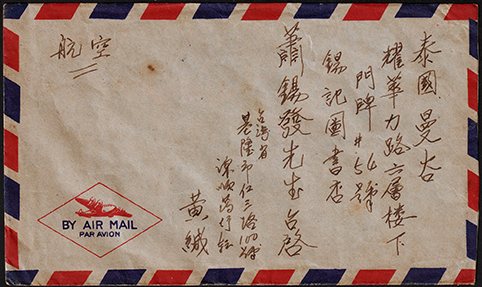 航空
泰國曼谷
耀華力路六層楼下
門牌#54號
錫記圖書店
蕭錫發先生台啓
台灣省
基隆市仁二路100號
黄緘
BY AIR MAIL
PAR AVION